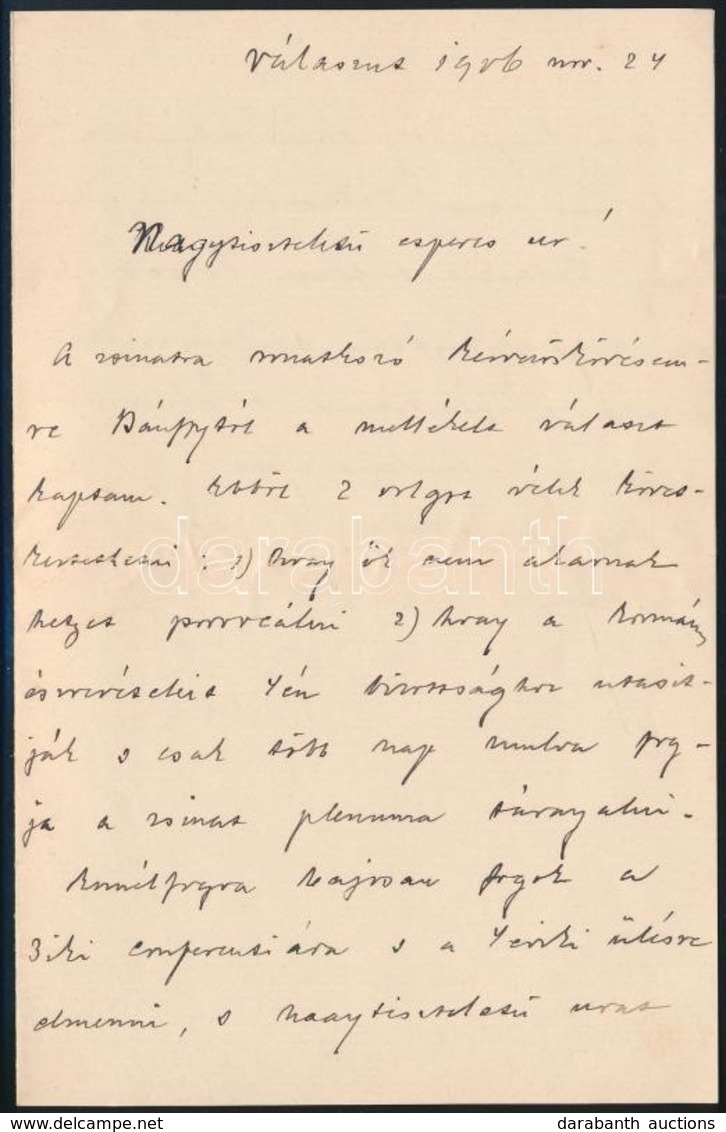 Válaszut 1906 nov. 24
Nagytiszteletű esperes ur!
A zsinatra vonatkozó kérdezősködésem-
re Bánffytól a mellékelt választ
kaptam. Ebből 2 dolgot vélek követ-
keztethetni: 1) hogy ők nem akarnak
helyet provocálni 2) hogy a kormány
észrevételeit 4én bizottsághoz utasít-
ják s csak több nap mulva fog-
ja a zsinat plenuma tárgyalni.
Ennélfogva bajosan fogok a
3iki conferentiára s a 4eiki ülésre
elmenni, s nagytiszteletű urat
darabanth
darabanth auctions